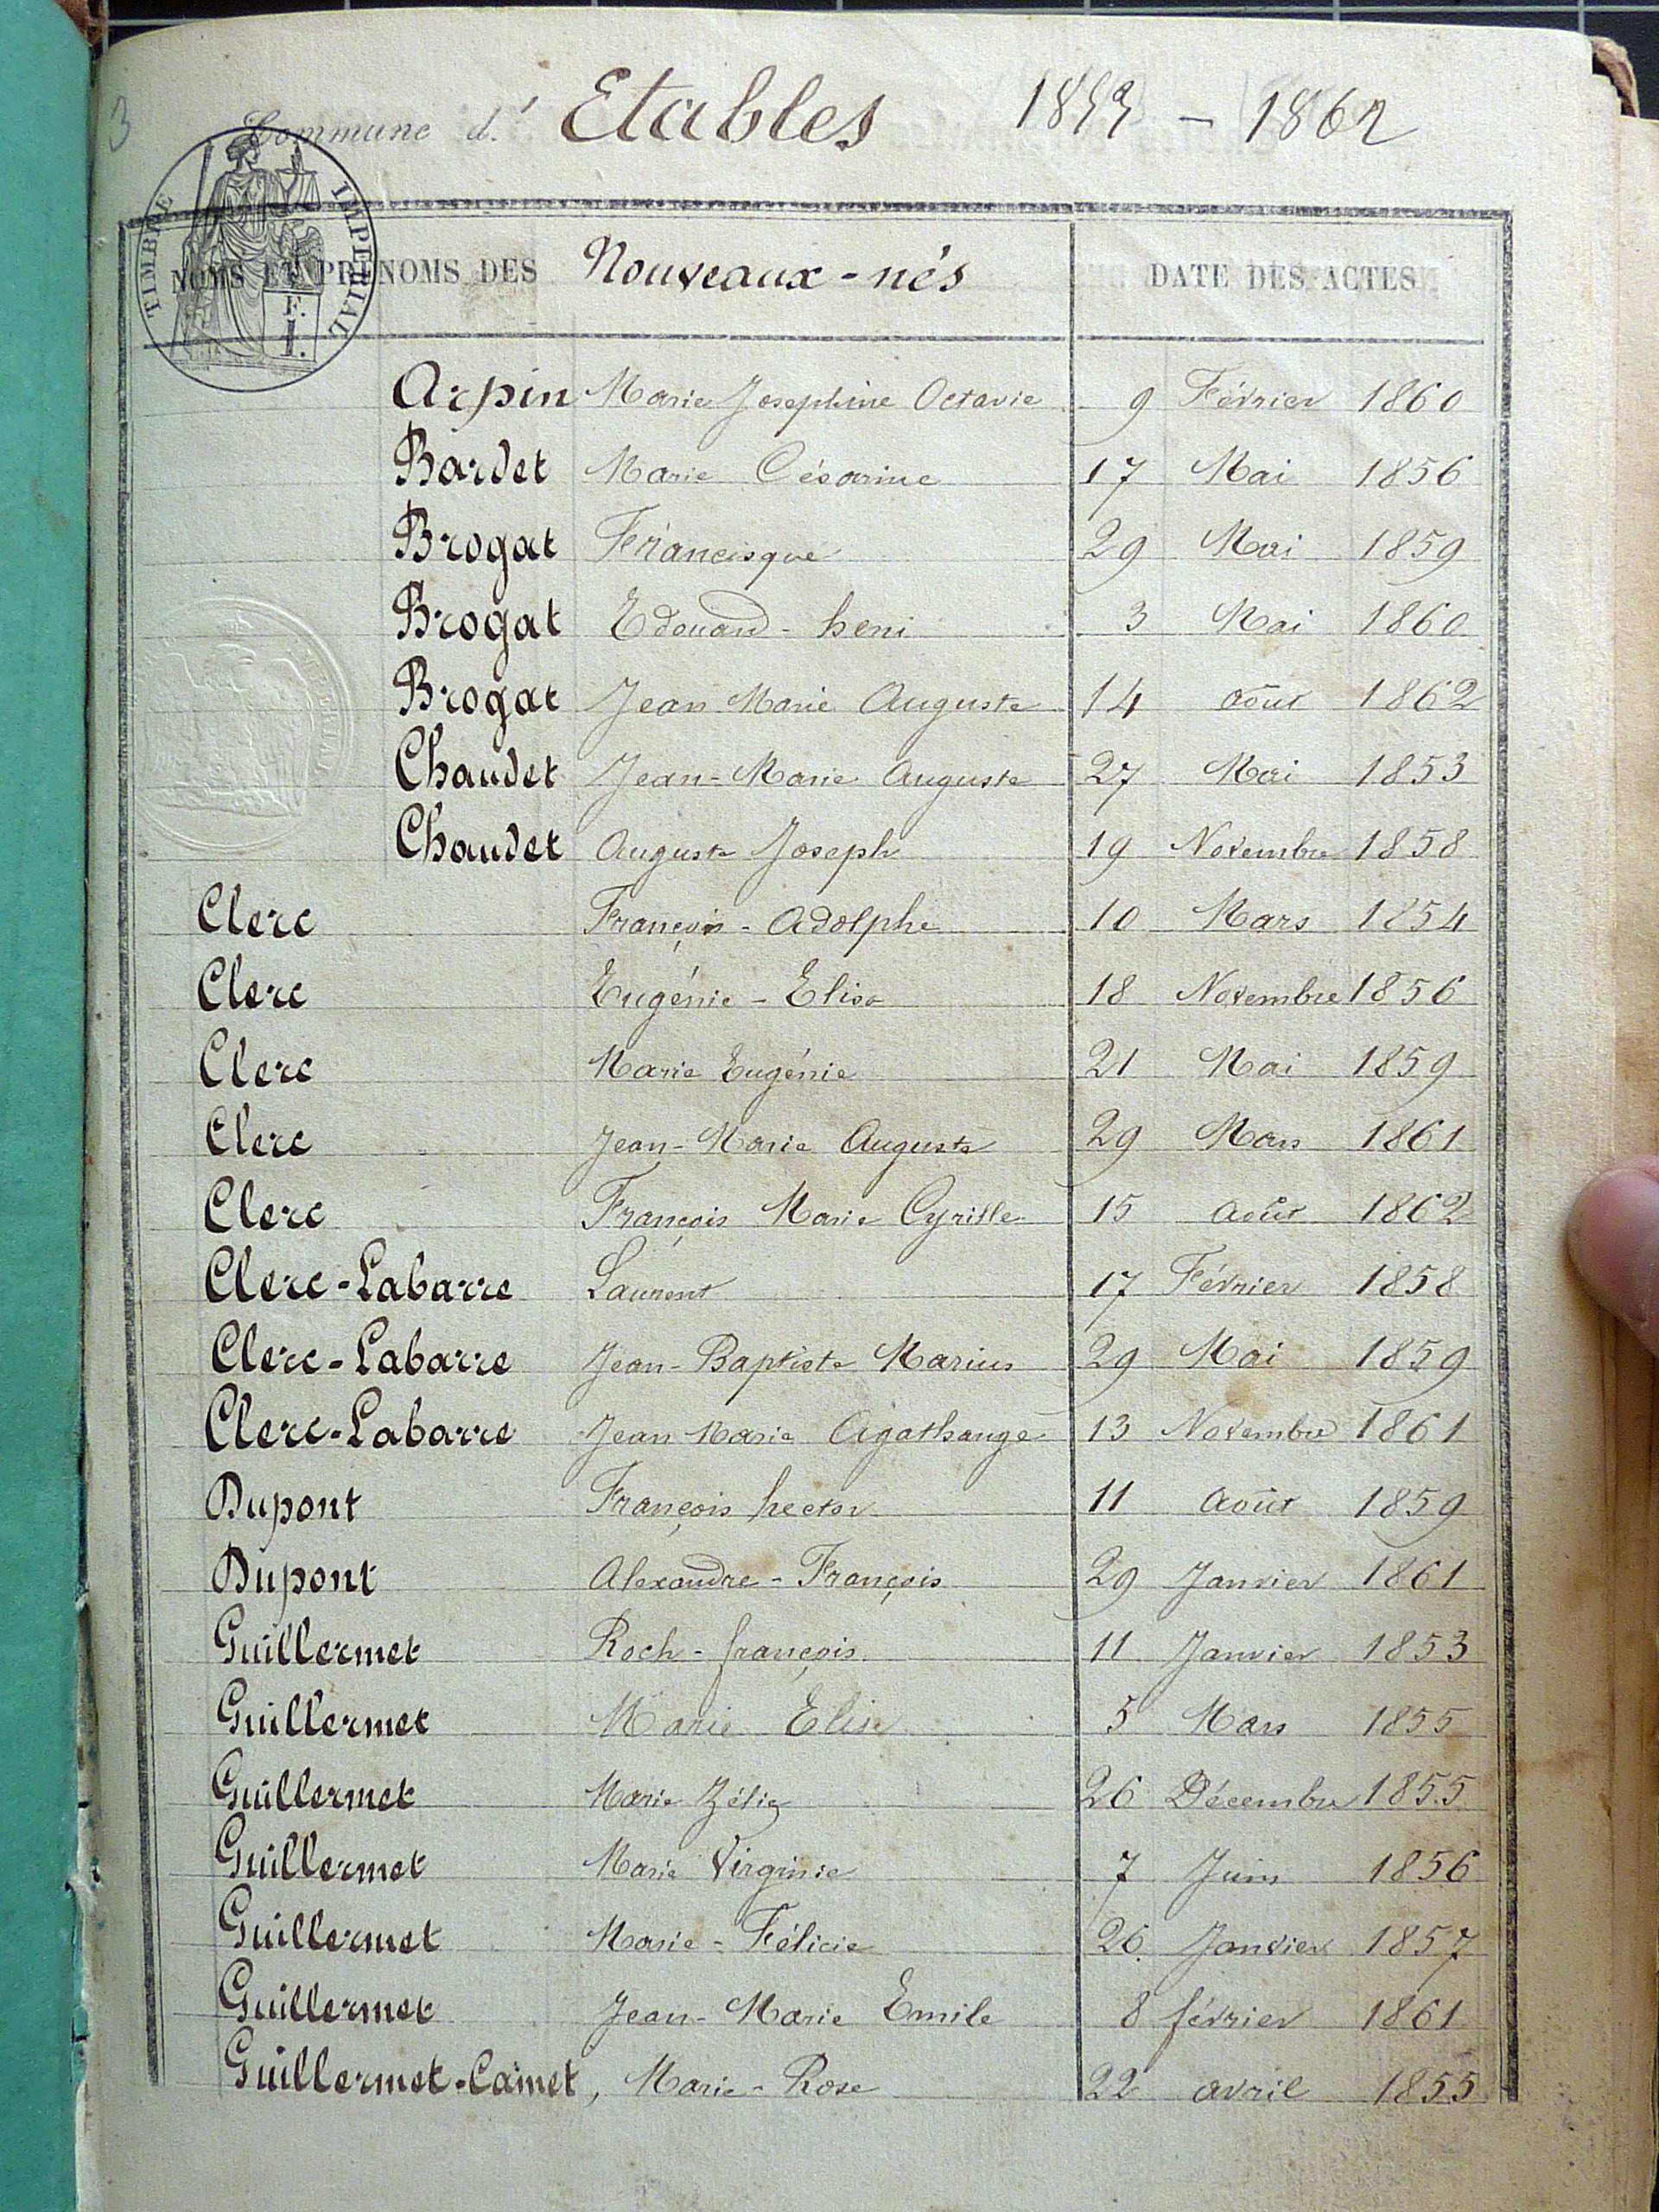 3
Commune d' Etables 1853 - 1862
TIMBRE IMPERIAL
F.
1.
NOMS ET PRÉNOMS DES Nouveaux-nés DATE DES ACTES
Arpin Marie Josephine Octavie 9 Février 1860
Bardet Marie Césarine 17 Mai 1856
Brogat Francisque 29 Mai 1859
Brogat Edouard - heni 3 Mai 1860
Brogat Jean Marie Auguste 14 août 1862
Chaudet Jean-Marie Auguste 27 Mai 1853
Chaudet Auguste Joseph 19 Novembre 1858
Clerc François - Adolphe 10 Mars 1854
Clerc Eugénie - Elisa 18 Novembre 1856
Clerc Marie Eugénie 21 Mai 1859
Clerc Jean-Marie Auguste 29 Mars 1861
Clerc François Marie Cyrille 15 août 1862
Clerc-Labarre Laurent 17 Février 1858
Clerc-Labarre Jean-Baptiste Marius 29 Mai 1859
Clerc-Labarre Jean Marie Agathange 13 Novembre 1861
Dupont François hector 11 août 1859
Dupont Alexandre - François 29 Janvier 1861
Guillermet Roch - françois 11 Janvier 1853
Guillermet Marie Elise 5 Mars 1855
Guillermet Marie Zélie 26 Décembre 1855
Guillermet Marie Virginie 7 Juin 1856
Guillermet Marie - Félicie 26 Janvier 1857
Guillermet Jean-Marie Emile 8 février 1861
Guillermet-Camet, Marie-Rose 22 avril 1855